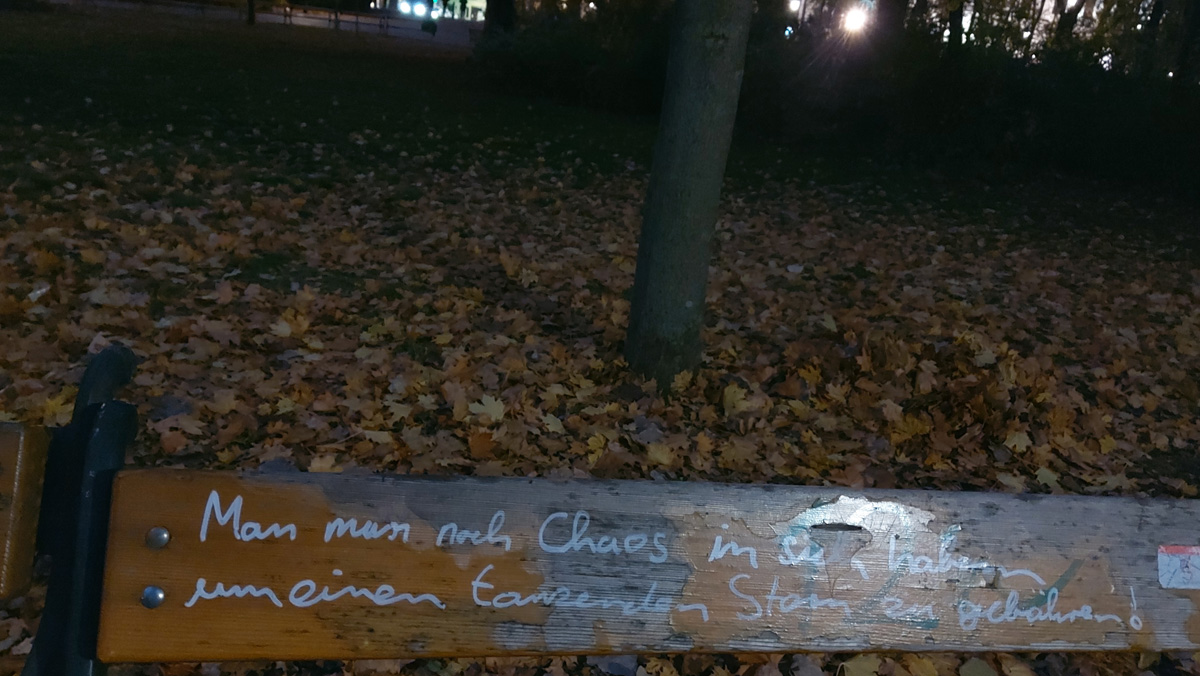 Man muss noch Chaos in sich haben
um einen tanzenden Stern zu gebähren!